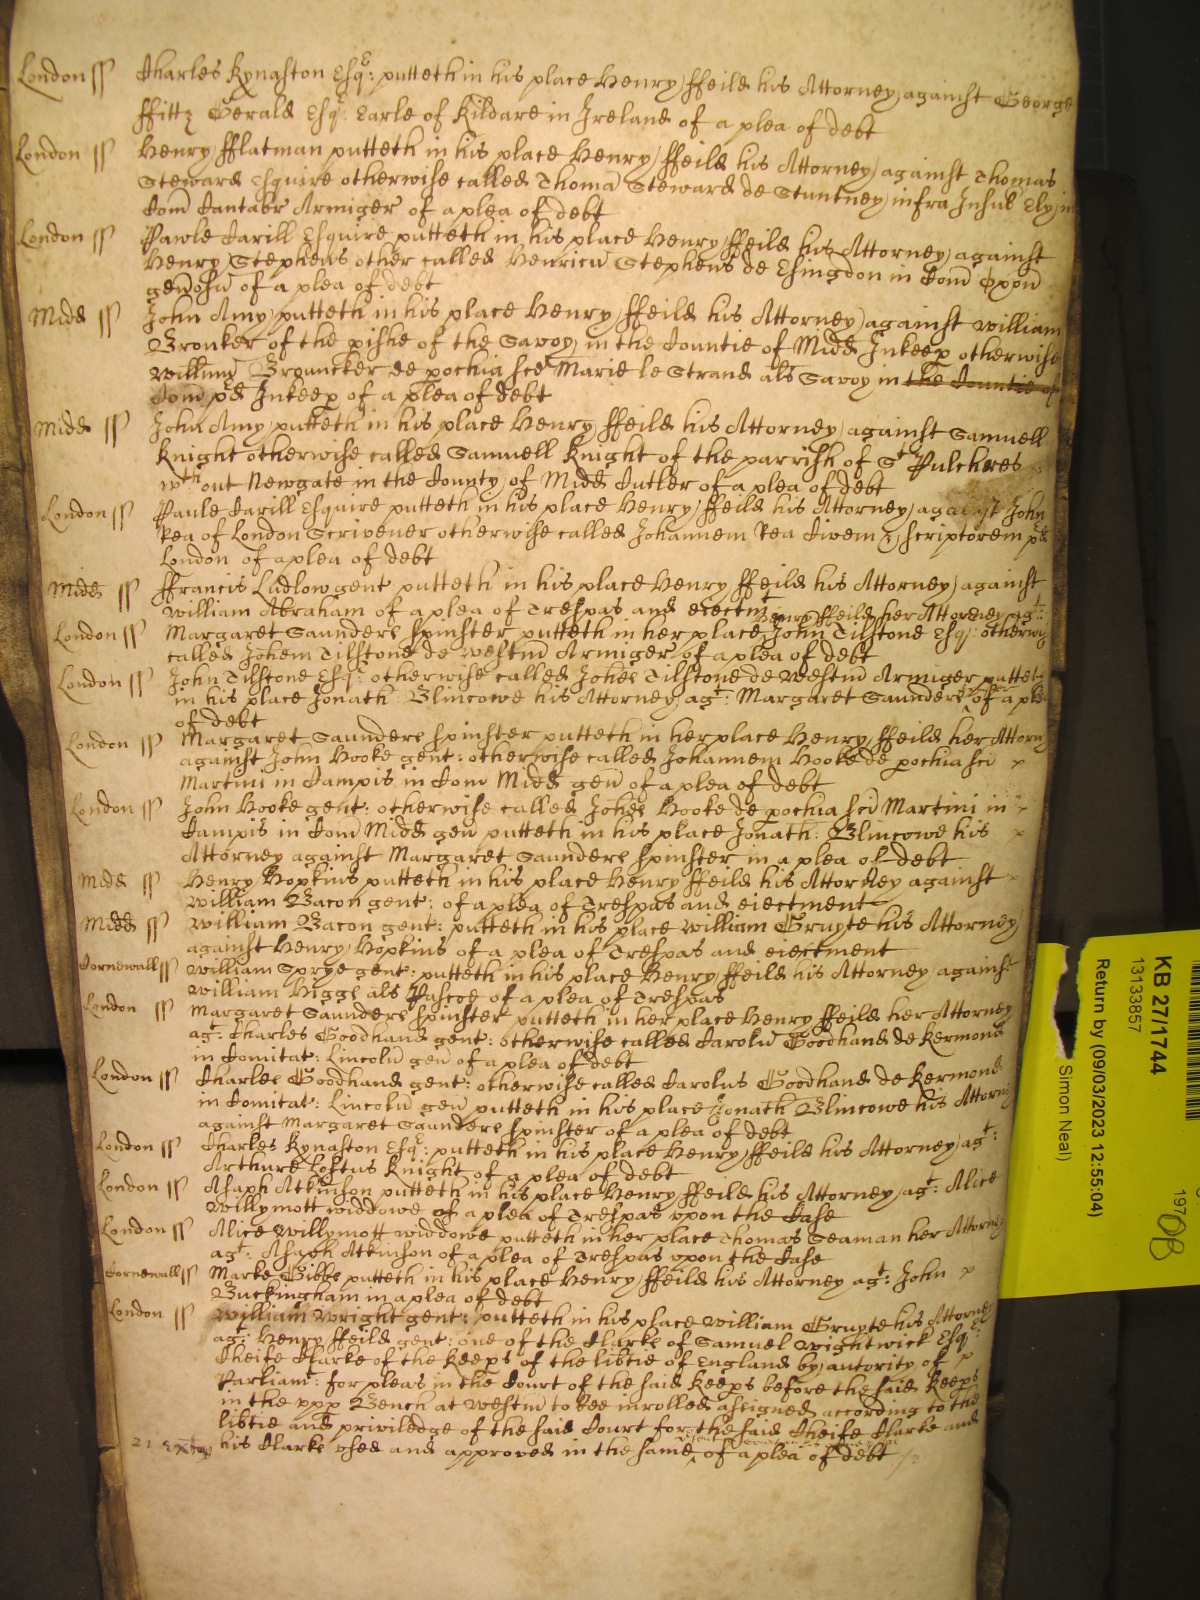 London ss Charles Kynaston Esqr: putteth in his place Henry ffeild his Attorney against George
ffittz Gerald Esqr: Earle of Kildare in Ireland of a plea of debt
London ss Henry fflatman putteth in his place Henry ffeild his Attorney against Thomas
Steward Esquire otherwise called Thoma Steward de Stuntney infra Insul Ely in
Com Cantabr Armiger of a plea of debt
London ss Pawle Carill Esquire putteth in his place Henry ffeild his Attorney against
Henry Stephens other called Henricu Stephens de Esingdon in Com Oxon
genosu of a plea of debt
Midd ss John Amy putteth in his place Henry ffeild his Attorney against William
Bronker of the pishe of the Savoy in the Countie of Midd Inkeep otherwise
Willmu Brouncker de pochia sce Marie le Strand als Savoy in the Countie of
Com pd Inkeep of a plea of debt
Midd ss John Amy putteth in his place Henry ffeild his Attorney against Samuell
Knight otherwise called Samuell Knight of the parrish of St Pulchres
wthout Newgate in the County of Midd Cutler of a plea of debt
London ss Paule Carill Esquire putteth in his place Henry ffeild his Attorney against John
Rea of London Scrivener otherwise called Johannem Rea Civem & scriptorem pd
London of a plea of debt
Midd ss ffrancis Ludlow gent putteth in his place Henry ffeild his Attorney against
William Abraham of a plea of Trespas and eiectmt
Henry ffeild her Attorney agt:
London ss Margaret Saunders spinster putteth in her place John Tilstone Esqr: otherwise
called Johem Tilstone de Westm Armiger of a plea of debt
London ss John Tilstone Esqr: otherwise called Johes Tilstone de Westm Armiger putteth
in his place Jonath: Blincowe his Attorney agt: Margaret Saunders of a plea
of debt
London ss Margaret Saunders spinster putteth in her place Henry ffeild her Attorny
against John Hooke gent: otherwise called Johannem Hooke de pochia sci
Martini in Campis in Com Midd gen of a plea of debt
London ss John Hooke gent: otherwise called Johes Hooke de pochia sci Martini in
Campis in Com Midd gen putteth in his place Jonath: Blincowe his
Attorney against Margaret Saunders spinster in a plea of debt
Midd ss Henry Hopkins putteth in his place Henry ffeild his Attorney against
William Bacon gent: of a plea of Trespas and eiectment
Midd ss William Bacon gent: putteth in his place William Grupte his Attorney
against Henry Hopkins of a plea of Trespas and eiectment
Cornewall ss William Sprye gent: putteth in his place Henry ffeild his Attorney against
William Higgs als Pascoe of a plea of Trespas
London ss Margaret Saunders spinster putteth in her place Henry ffeild her Attorney
agt: Charles Goodhand gent: otherwise called Carolu Goodhand de Kermond
in Comitat: Lincoln gen of a plea of debt
London ss Charles Goodhand gent: otherwise called Carolus Goodhand de Kermond
in Comitat: Lincoln gen putteth in his place Jonath Blincowe his Attorny
against Margaret Saunders spinster of a plea of debt
London ss Charles Kynaston Esqr: putteth in his place Henry ffeild his Attorney agt:
Arthure Loftus Knight of a plea of debt
London ss Asaph Atkinson putteth in his place Henry ffeild his Attorney agt: Alice
Willymott widdowe of a plea of Trespas vpon the Case
London ss Alice Willymott widdowe putteth in her place Thomas Seaman her Attorney
agt: Asaph Atkinson of a plea of Trespas vpon the Case
Cornewall ss Marke Gibbs putteth in his place Henry ffeild his Attorney agt: John
Buckingham in a plea of debt
London ss William Wright gent: putteth in his place William Grupte his Attorney
agt: Henry ffeild gent: one of the Clarks of Samuel Wightwick Esqr:
Cheife Clarke of the Keeps of the libtie of England by autority of
Parliamt: for pleas in the Court of the said Keeps before the said Keeps
in the vpp Bench at Westm to bee inrolled assigned according to the
libtie and priviledge of the said Court for the said Cheife Clarke and
his Clarks vsed and approved in the same of a plea of debt
21
KB 27/1744
13133857
Return by (09/03/2023 12:55:04)
Simon Neal)